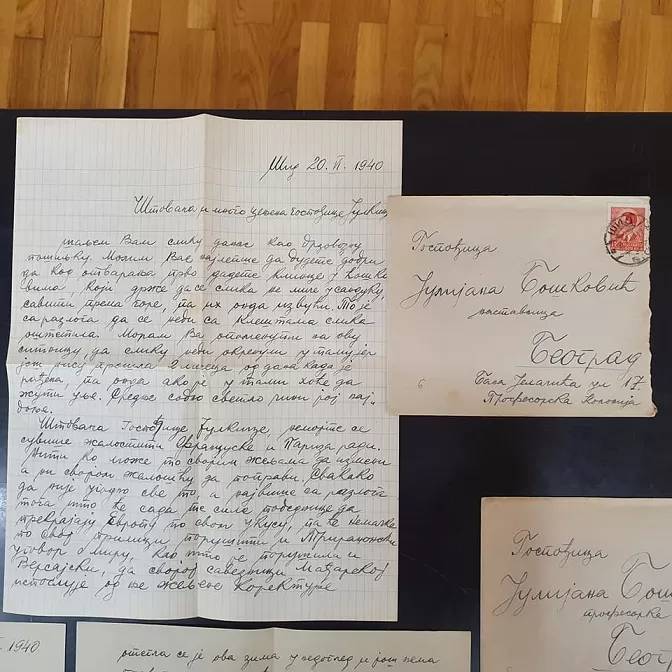 Шид 20. VI. 1940
Штована и много цењена Госпођице Јулкице
шаљем Вам слику данас као брзовозну
пошиљку. Молим Вас најлепше да будете добри
да код отварања прво дадете
вима, који држе да се слика не миче у сандуку,
савити према горе, па их онда извући. То је
са разлога да се неби са клештама слика
оштетила. Морам Ва опоменути на ову
ситницу, да слику неби окренули у тами јер
још нису прошла 2 месеца од дана када је
рађена, па онда ако је у тами хоће да
жути уље. Средње собно светло чини јој нај-
боље.
Штована Госпођице Јулкице, немојте се
сувише жалостити Француске и Париза ради.
Нити ко може то својим жељама да измени
а ни својом жалошћу да поправи. Свакако
да није угодно све то, а највише са разлога
тога што ће сада те силе победнице да
прекрајају Европу по свом укусу, па ће Немачка
по свој прилици порушити и Тријанонски
уговор о миру, као што је порушила и
Версајски, да својој савезници Мађарској
испослује од ње жељене коректуре
Госпођица
Јулијана Бошковић
наставница
Београд
Бана Јелачића ул 17
Професорска Колонија
6
Госпођица
Јулијана
професорка
Беог
1940
ова зима у недоглед и још нема